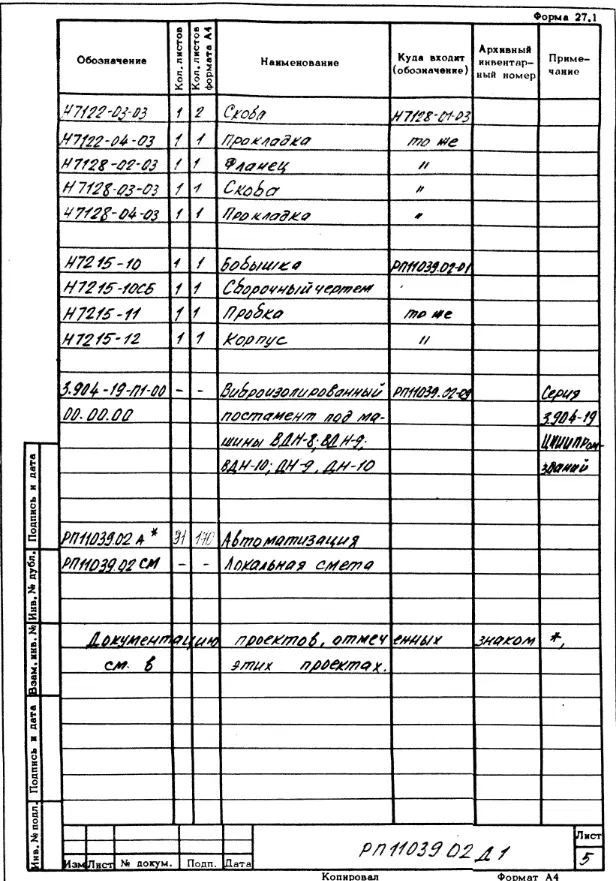 Форма 27.1
Обозначение Кол. листов Кол. листов формата А4 Наименование Куда входит (обозначение) Архивный инвентарный номер Примечание
Н7122-03-03 1 2 Скоба Н7128-01-03
Н7122-04-03 1 1 Прокладка то же
Н7128-02-03 1 1 Фланец "
Н7128-03-03 1 1 Скоба "
Н7128-04-03 1 1 Прокладка "
Н7215-10 1 1 Бобышка РП11039.02-01
Н7215-10СБ 1 1 Сборочный чертеж
Н7215-11 1 1 Пробка то же
Н7215-12 1 1 Корпус "
3.904-19-П1-00 - - Виброизолированный Серия
00.00.00 постамент под ма- 3.904-19
шины ВДН-8; ВДН-9; ЦНИИПром-
ВДН-10; ДН-9, ДН-10 зданий
РП11039.02 А * 91 Автоматизация
РП11039.02 СМ - - Локальная смета
Документацию проектов, отмеченных знаком *,
см. в этих проектах.
Инв. № подл. Подпись и дата Взам. инв. № Инв. № дубл. Подпись и дата
РП11039 02 Д1
Лист
5
Изм Лист № докум. Подп. Дата
Копировал Формат А4